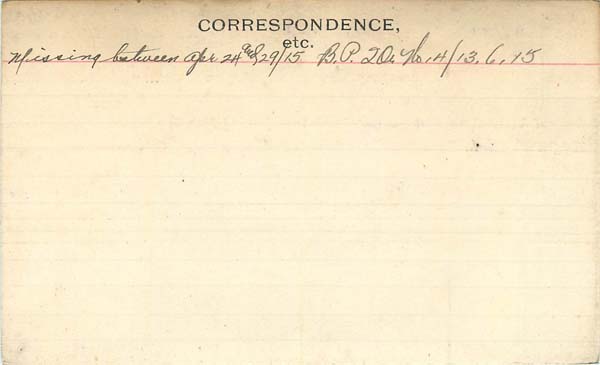 CORRESPONDENCE,
etc.
Missing between Apr 24 and 29/15 B.P. 20. No. 4/13.6.15